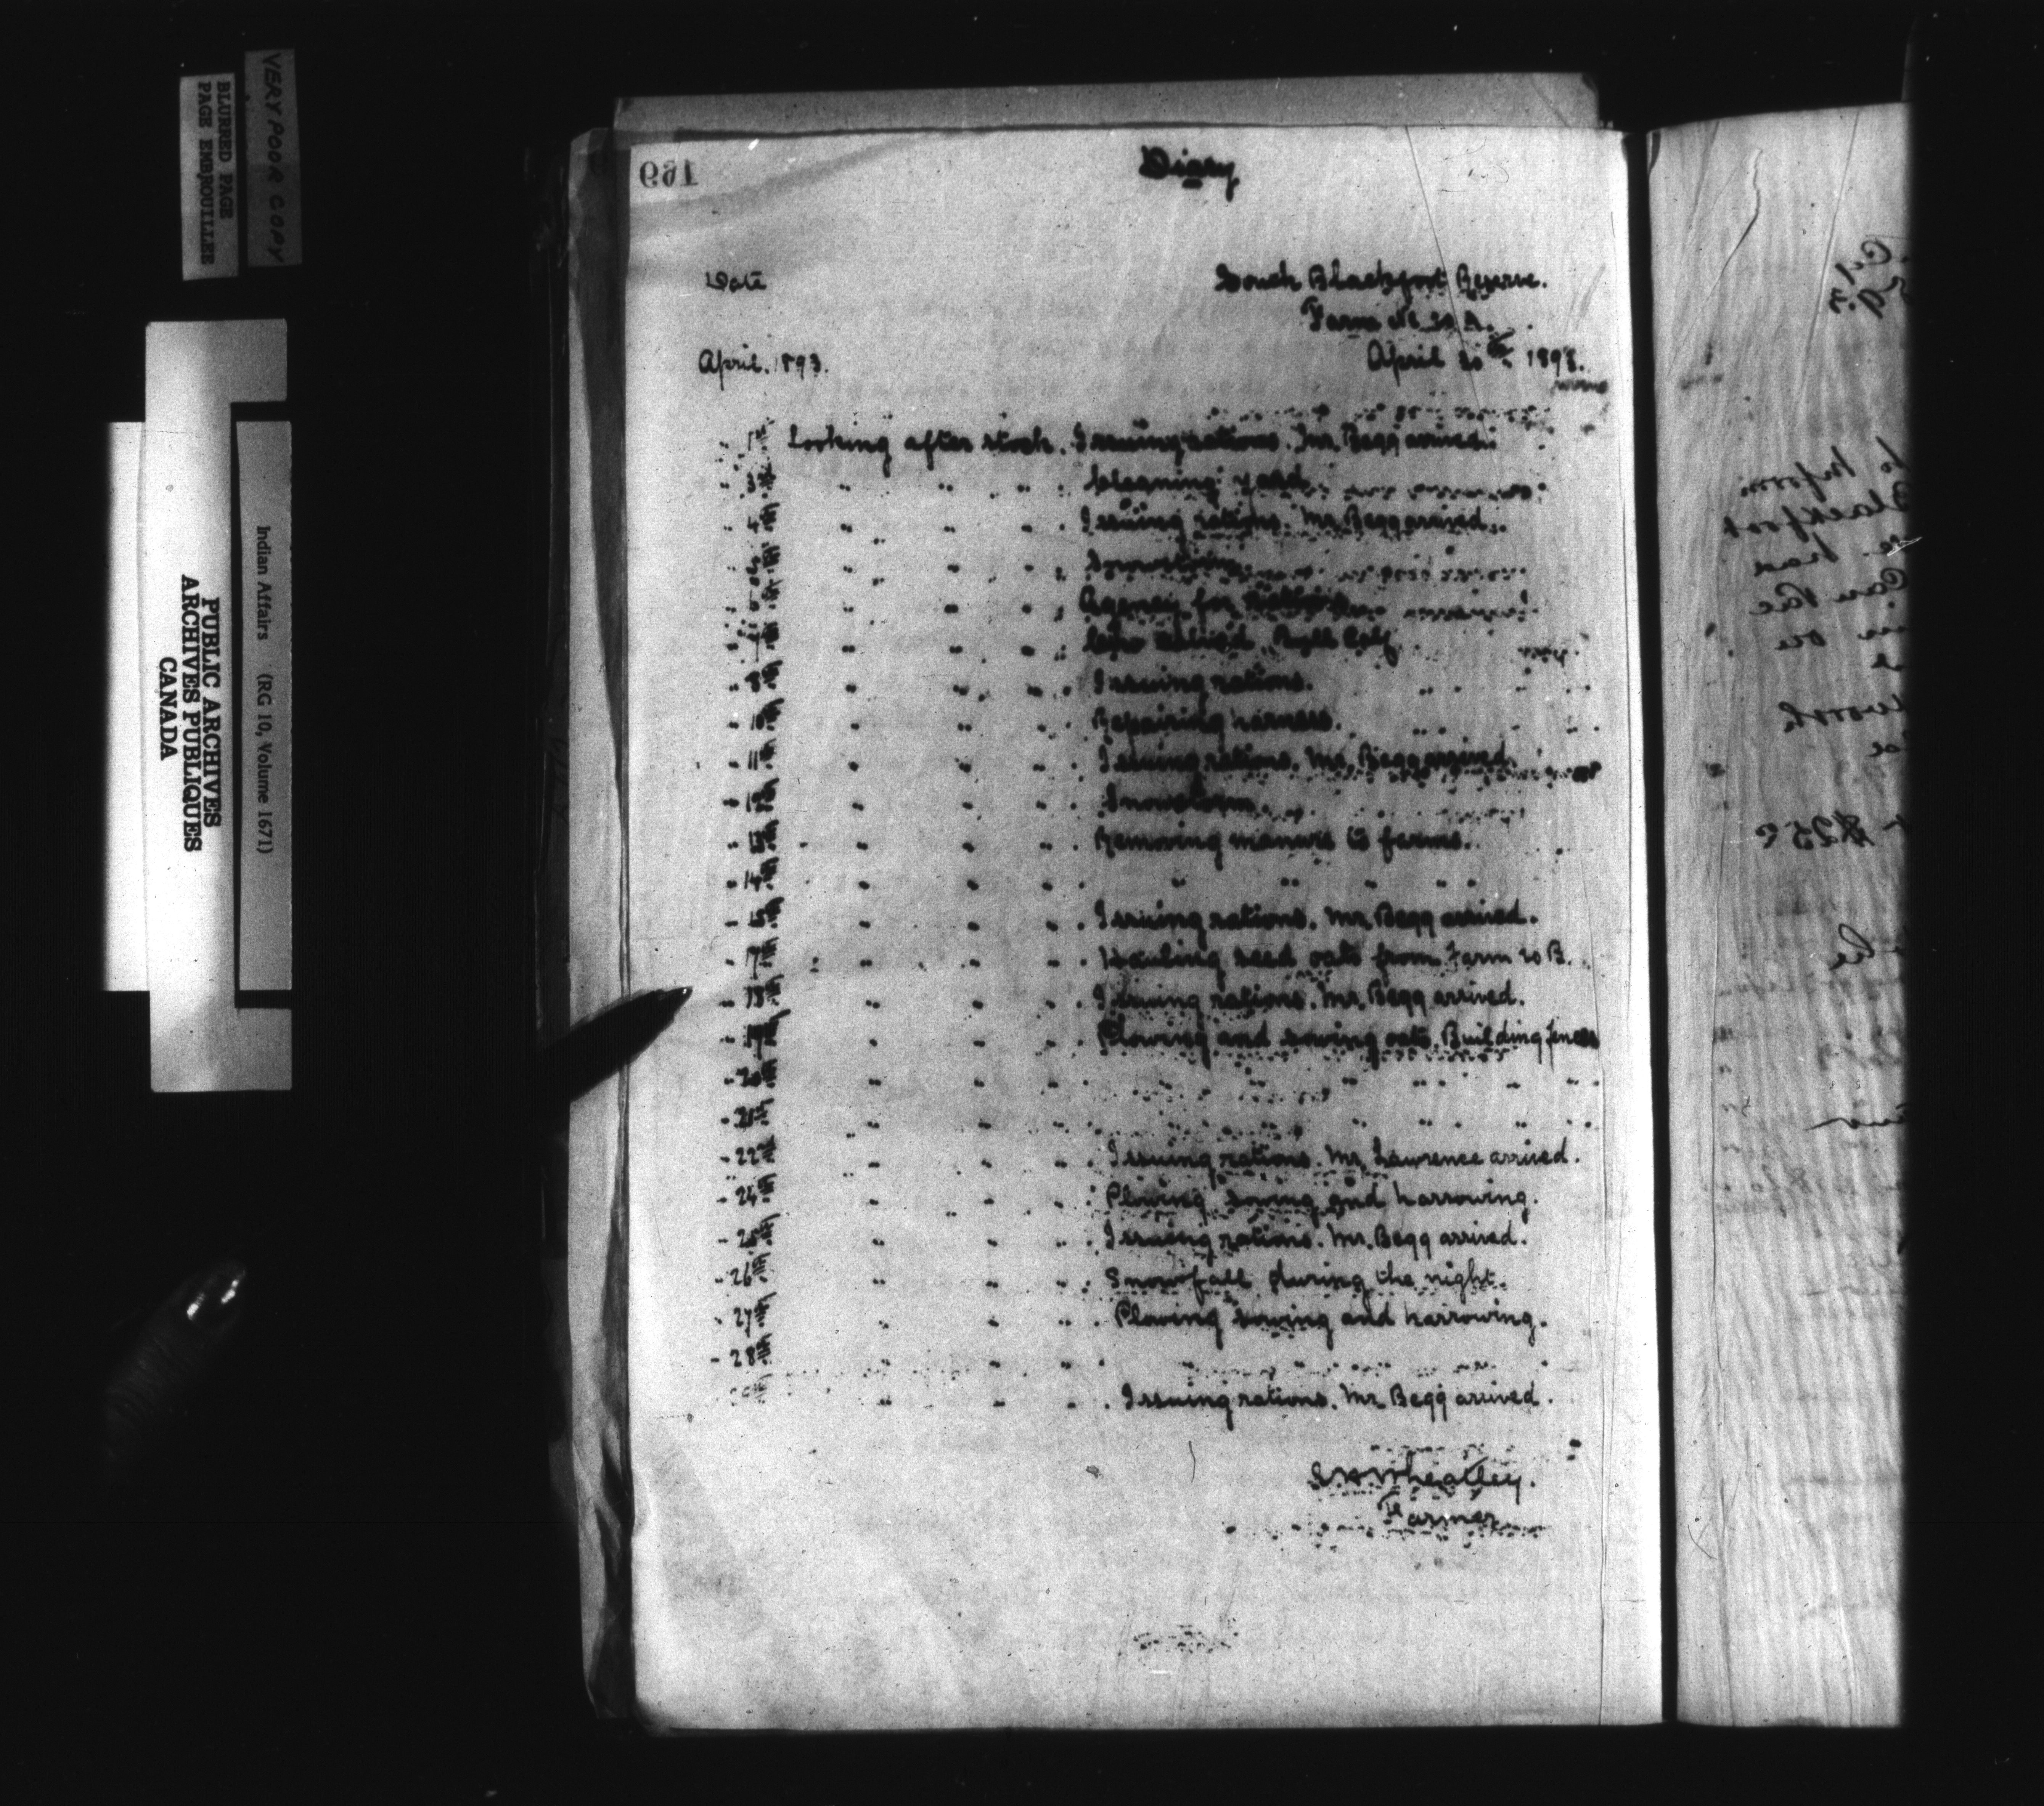 VERY POOR COPY
BLURRED PAGE
PAGE EMBROUILLEE
Indian Affairs (RG 10, Volume 1671)
PUBLIC ARCHIVES
ARCHIVES PUBLIQUES
CANADA
Diary
Date
South Blackfoot Reserve.
Farm No 20 A.
April. 1893.
April 30th 1893.
" 1st Looking after stock. Issuing rations. Mr. Begg arrived.
" 3rd " " " . Cleaning yard
" 4th " " " . Issuing rations. Mr. Begg arrived.
" " " . Snowstorm.
" " " . Agency for
" " " . Cow calved. Bull Calf
" 8th " " " . Issuing rations.
" 10th " " " . Repairing harness.
" 11th " " " . Issuing rations. Mr. Begg arrived.
" 12th " " " . Snowstorm.
" 13th " " " . Removing manure to farms.
" 14th " " " . " " " "
" 15th " " " . Issuing rations. Mr. Begg arrived.
" 17th " " " . Hauling seed oats from Farm 20 B.
" 18th " " " . Issuing rations. Mr. Begg arrived.
" 19th " " " . Plowing and sowing oats. Building fences
" 20th " " " . " " " "
" 21st " " " . " " " "
" 22nd " " " . Issuing rations. Mr. Lawrence arrived.
" 24th " " " . Plowing sowing and harrowing.
" 25th " " " . Issuing rations. Mr. Begg arrived.
" 26th " " " . Snowfall during the night.
" 27th " " " . Plowing sowing and harrowing.
" 28th " " " . " " " "
" " " . Issuing rations. Mr Begg arrived.
Wheatley.
Farmer
to inform
Blackfoot
$25